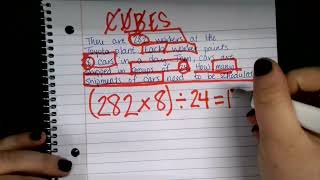 CUBES
There are 282 workers at the
Toyota plant. Each worker paints
8 cars in a day. Then, cars are
in groups of 24. How many
shipments of cars need to be scheduled
(282×8)÷24=1